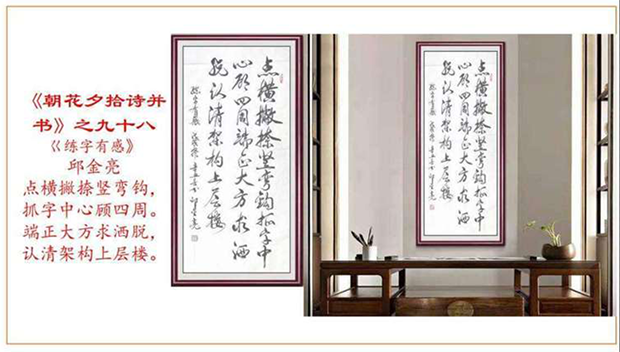 《朝花夕拾诗并
书》之九十八
《练字有感》
邱金亮
点横撇捺竖弯钩，
抓字中心顾四周。
端正大方求洒脱，
认清架构上层楼。
点横撇捺竖弯钩抓字中
心顾四周端正大方求洒
脱认清架构上层楼
点横撇捺竖弯钩抓字中
心顾四周端正大方求洒
脱认清架构上层楼